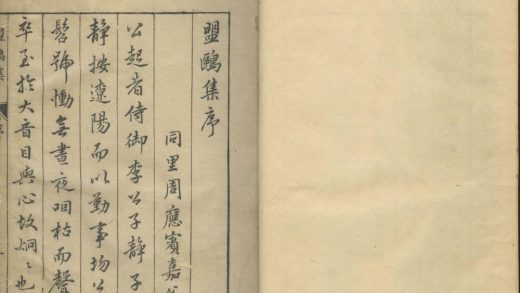 盟鷗集序
同里周應賓嘉
公起者侍御李公子靜子
靜按遼陽而以勤事場公
髫號慟無晝夜咽枯而聲
卒至於大音目與心故炯〻也